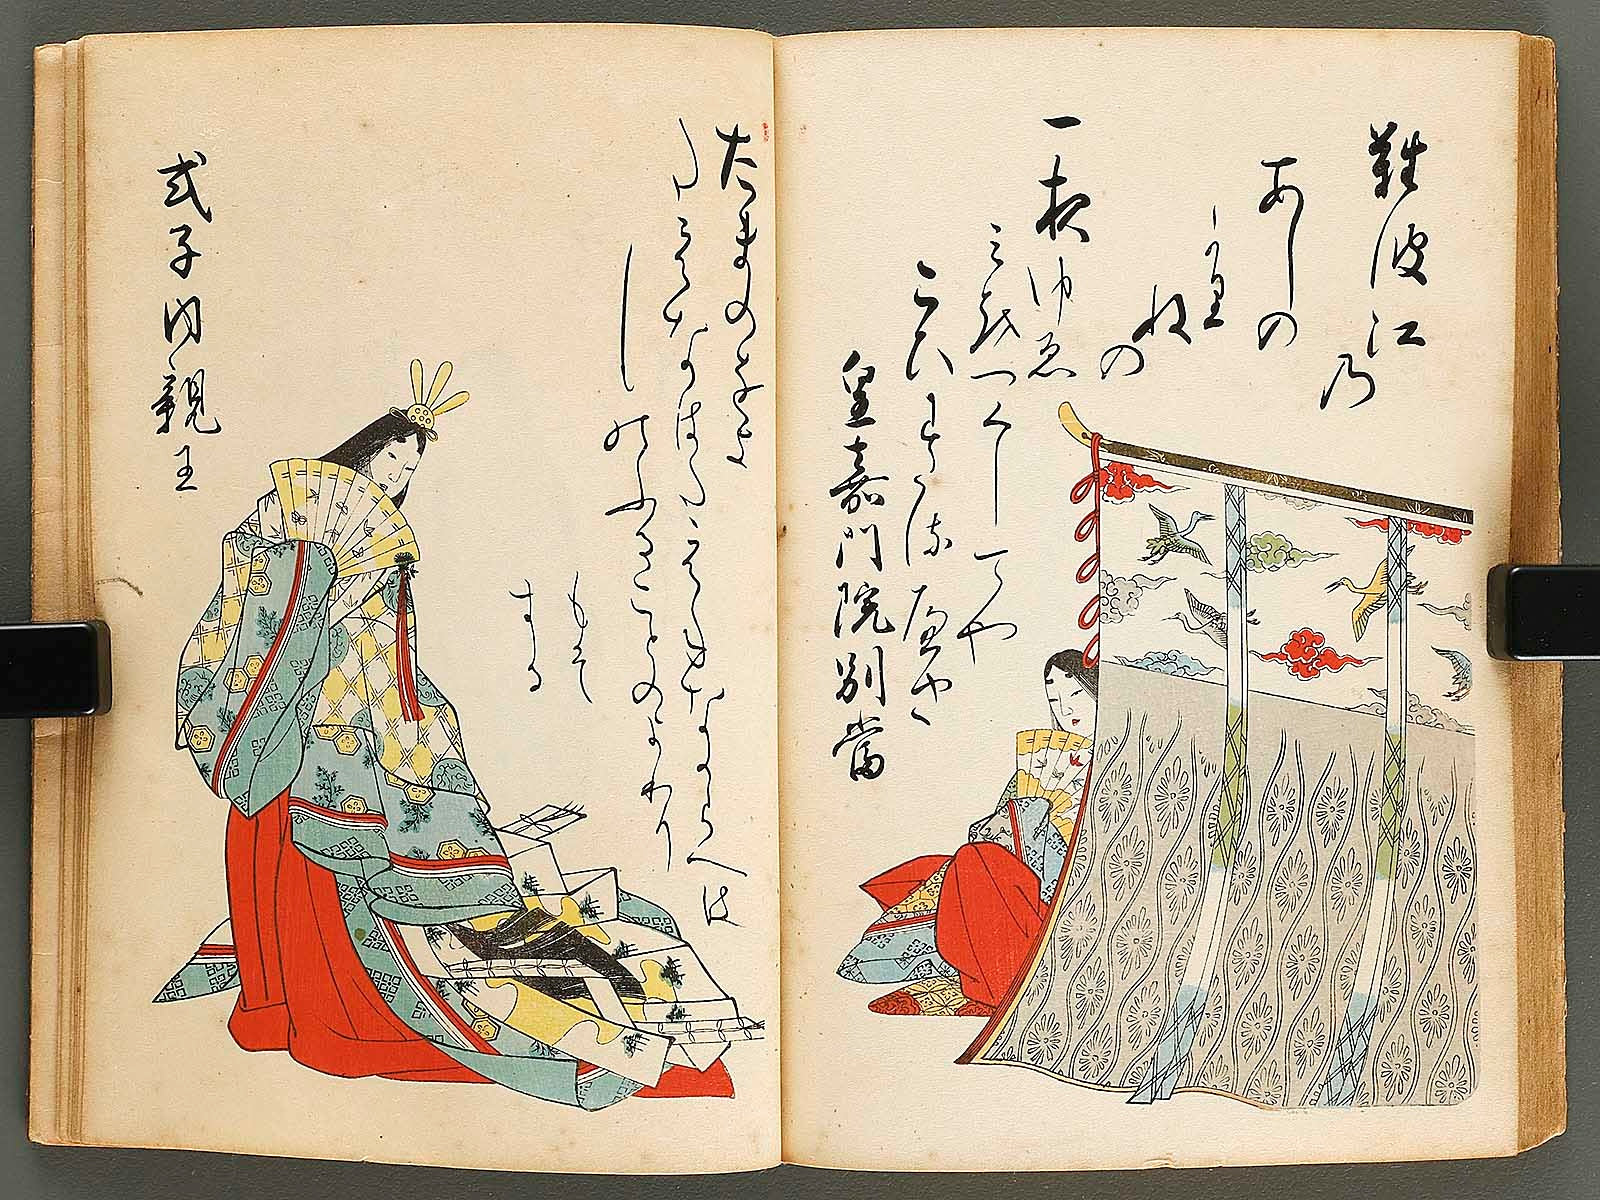 難波江乃
あしの
かり
ねの
一夜ゆゑ
みをつくしてや
こひわたるへき
皇嘉門院別當
たまのをよ
たえなはたえねなからへは
しのふることのよわり
もそ
する
式子内親王